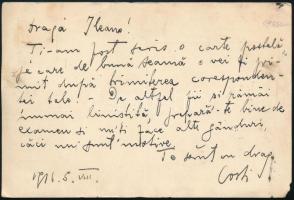 Dragă Ileano!
Ți-am fost scris o carte postală
pe care de bună seamă o vei fi pri-
mit după trimiterea coresponden-
ței tale. - De altfel fii și rămâi
numai liniștită, prepară-te bine de
examen și nu-ți face alte gânduri,
căci nu sunt motive.
Te sărut cu drag
1916. 5. VIII.